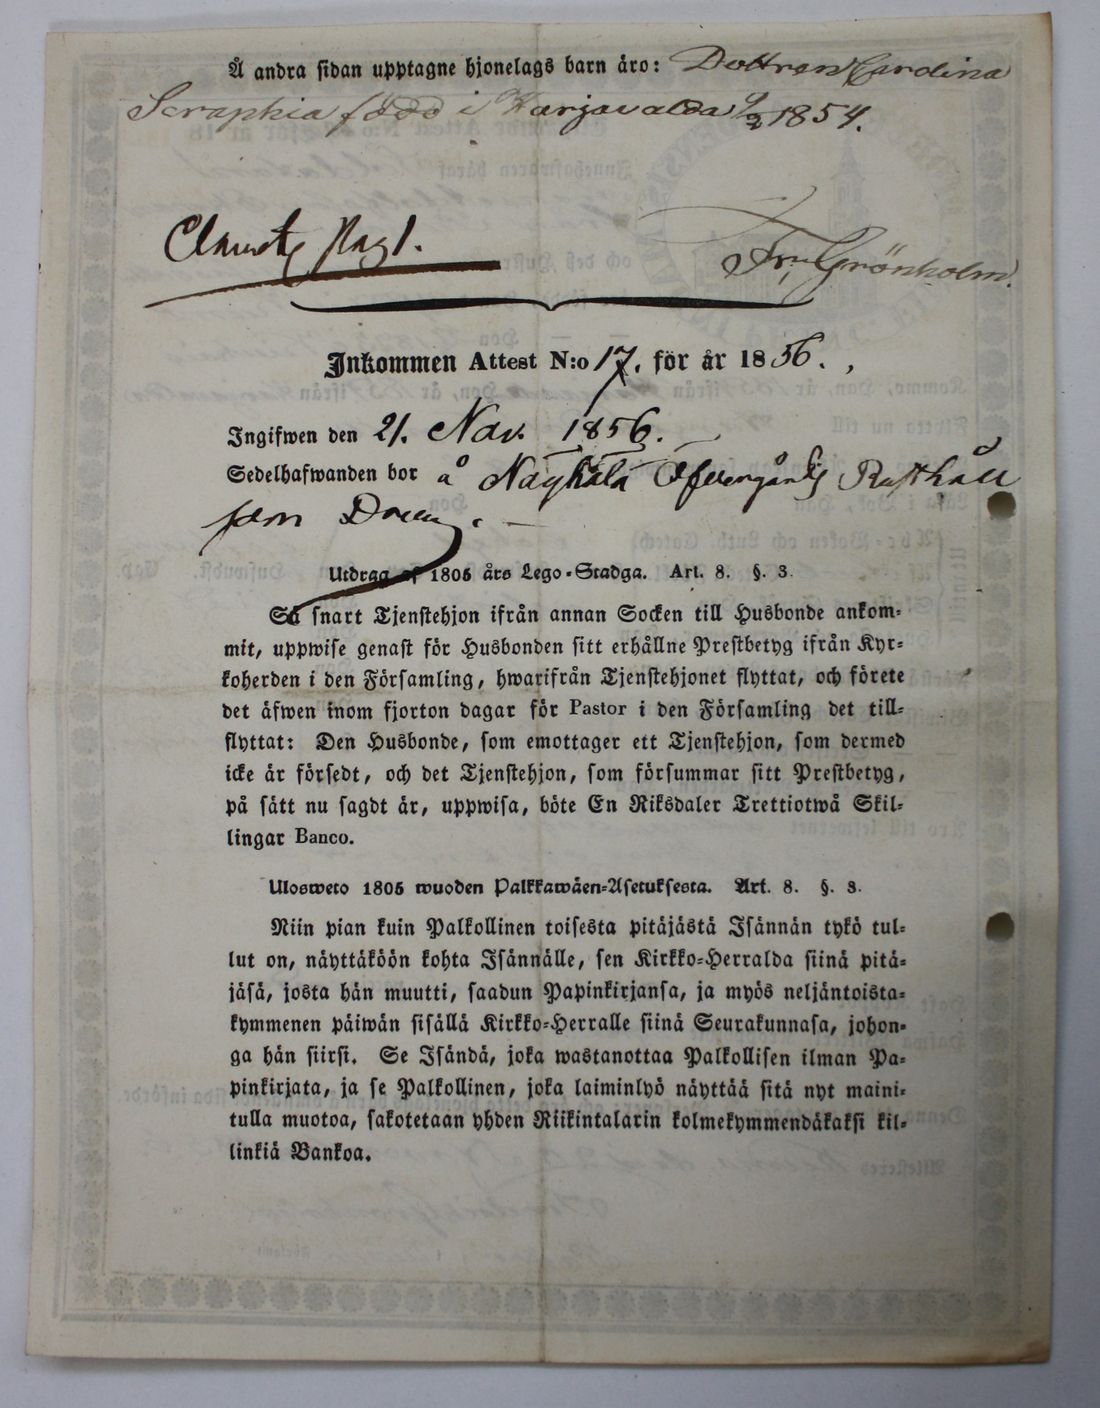 Å andra sidan upptagne hjonelags barn äro: Dottren Carolina
Seraphia född i Harjavalda 9/2 1854.
Fr. Grönholm.
Inkommen Attest N:o 17. för år 1856.
Ingifwen den 21. Nov. 1856.
Sedelhafwanden bor å Näyhälä Öfvergårds Rusthåll
som Dreng.
Utdrag af 1805 års Lego-Stadga. Art. 8. §. 3.
Så snart Tjenstehjon ifrån annan Socken till Husbonde ankom-
mit, uppwise genast för Husbonden sitt erhållne Prestbetyg ifrån Kyr-
koherden i den Församling, hwarifrån Tjenstehjonet flyttat, och förete
det äfwen inom fjorton dagar för Pastor i den Församling det till-
flyttat: Den Husbonde, som emottager ett Tjenstehjon, som dermed
icke är försedt, och det Tjenstehjon, som försummar sitt Prestbetyg,
på sätt nu sagdt är, uppwisa, böte En Riksdaler Trettiotwå Skil-
lingar Banco.
Ulosweto 1805 wuoden Palkkawäen-Asetuksesta. Art. 8. §. 3.
Niin pian kuin Palkollinen toisesta pitäjästä Isännän tykö tul-
lut on, näyttäköön kohta Isännälle, sen Kirkko-Herralda siinä pitä-
jäsä, josta hän muutti, saadun Papinkirjansa, ja myös neljäntoista-
kymmenen päiwän sisällä Kirkko-Herralle siinä Seurakunnasa, johon-
ga hän siirsi. Se Isändä, joka wastanottaa Palkollisen ilman Pa-
pinkirjata, ja se Palkollinen, joka laiminlyö näyttää sitä nyt maini-
tulla muotoa, sakotetaan yhden Riikintalarin kolmekymmendäkaksi kil-
linkiä Bankoa.